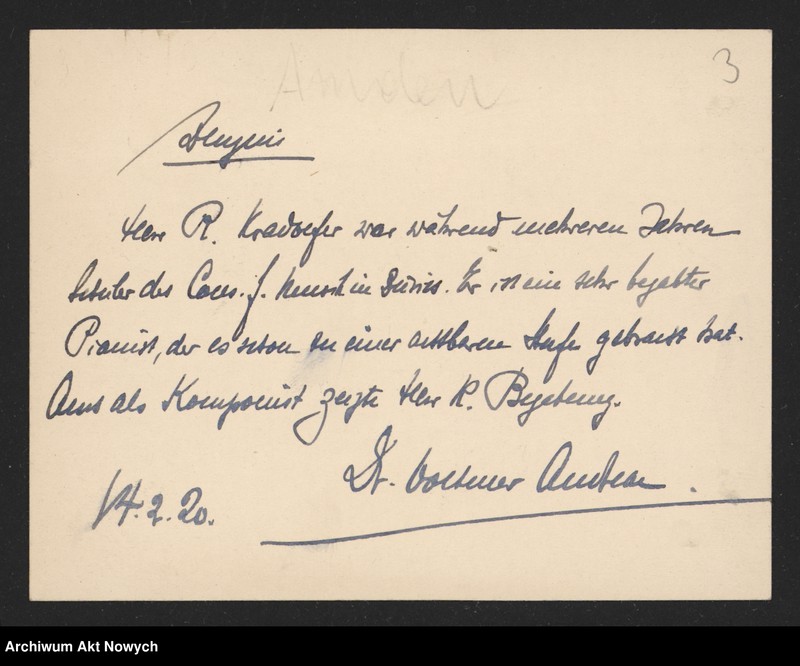 3
Zeugnis
Herr R. Kradolfer war während mehreren Jahren
Schüler des Cons. f. Musik in Zürich. Er ist eine sehr begabter
Pianist, der es schon zu einer achtbaren Stufe gebracht hat.
Auch als Komponist zeigte Herr K. Begabung.
Dr. Volkmar Andreae.
14.2.20.
Archiwum Akt Nowych